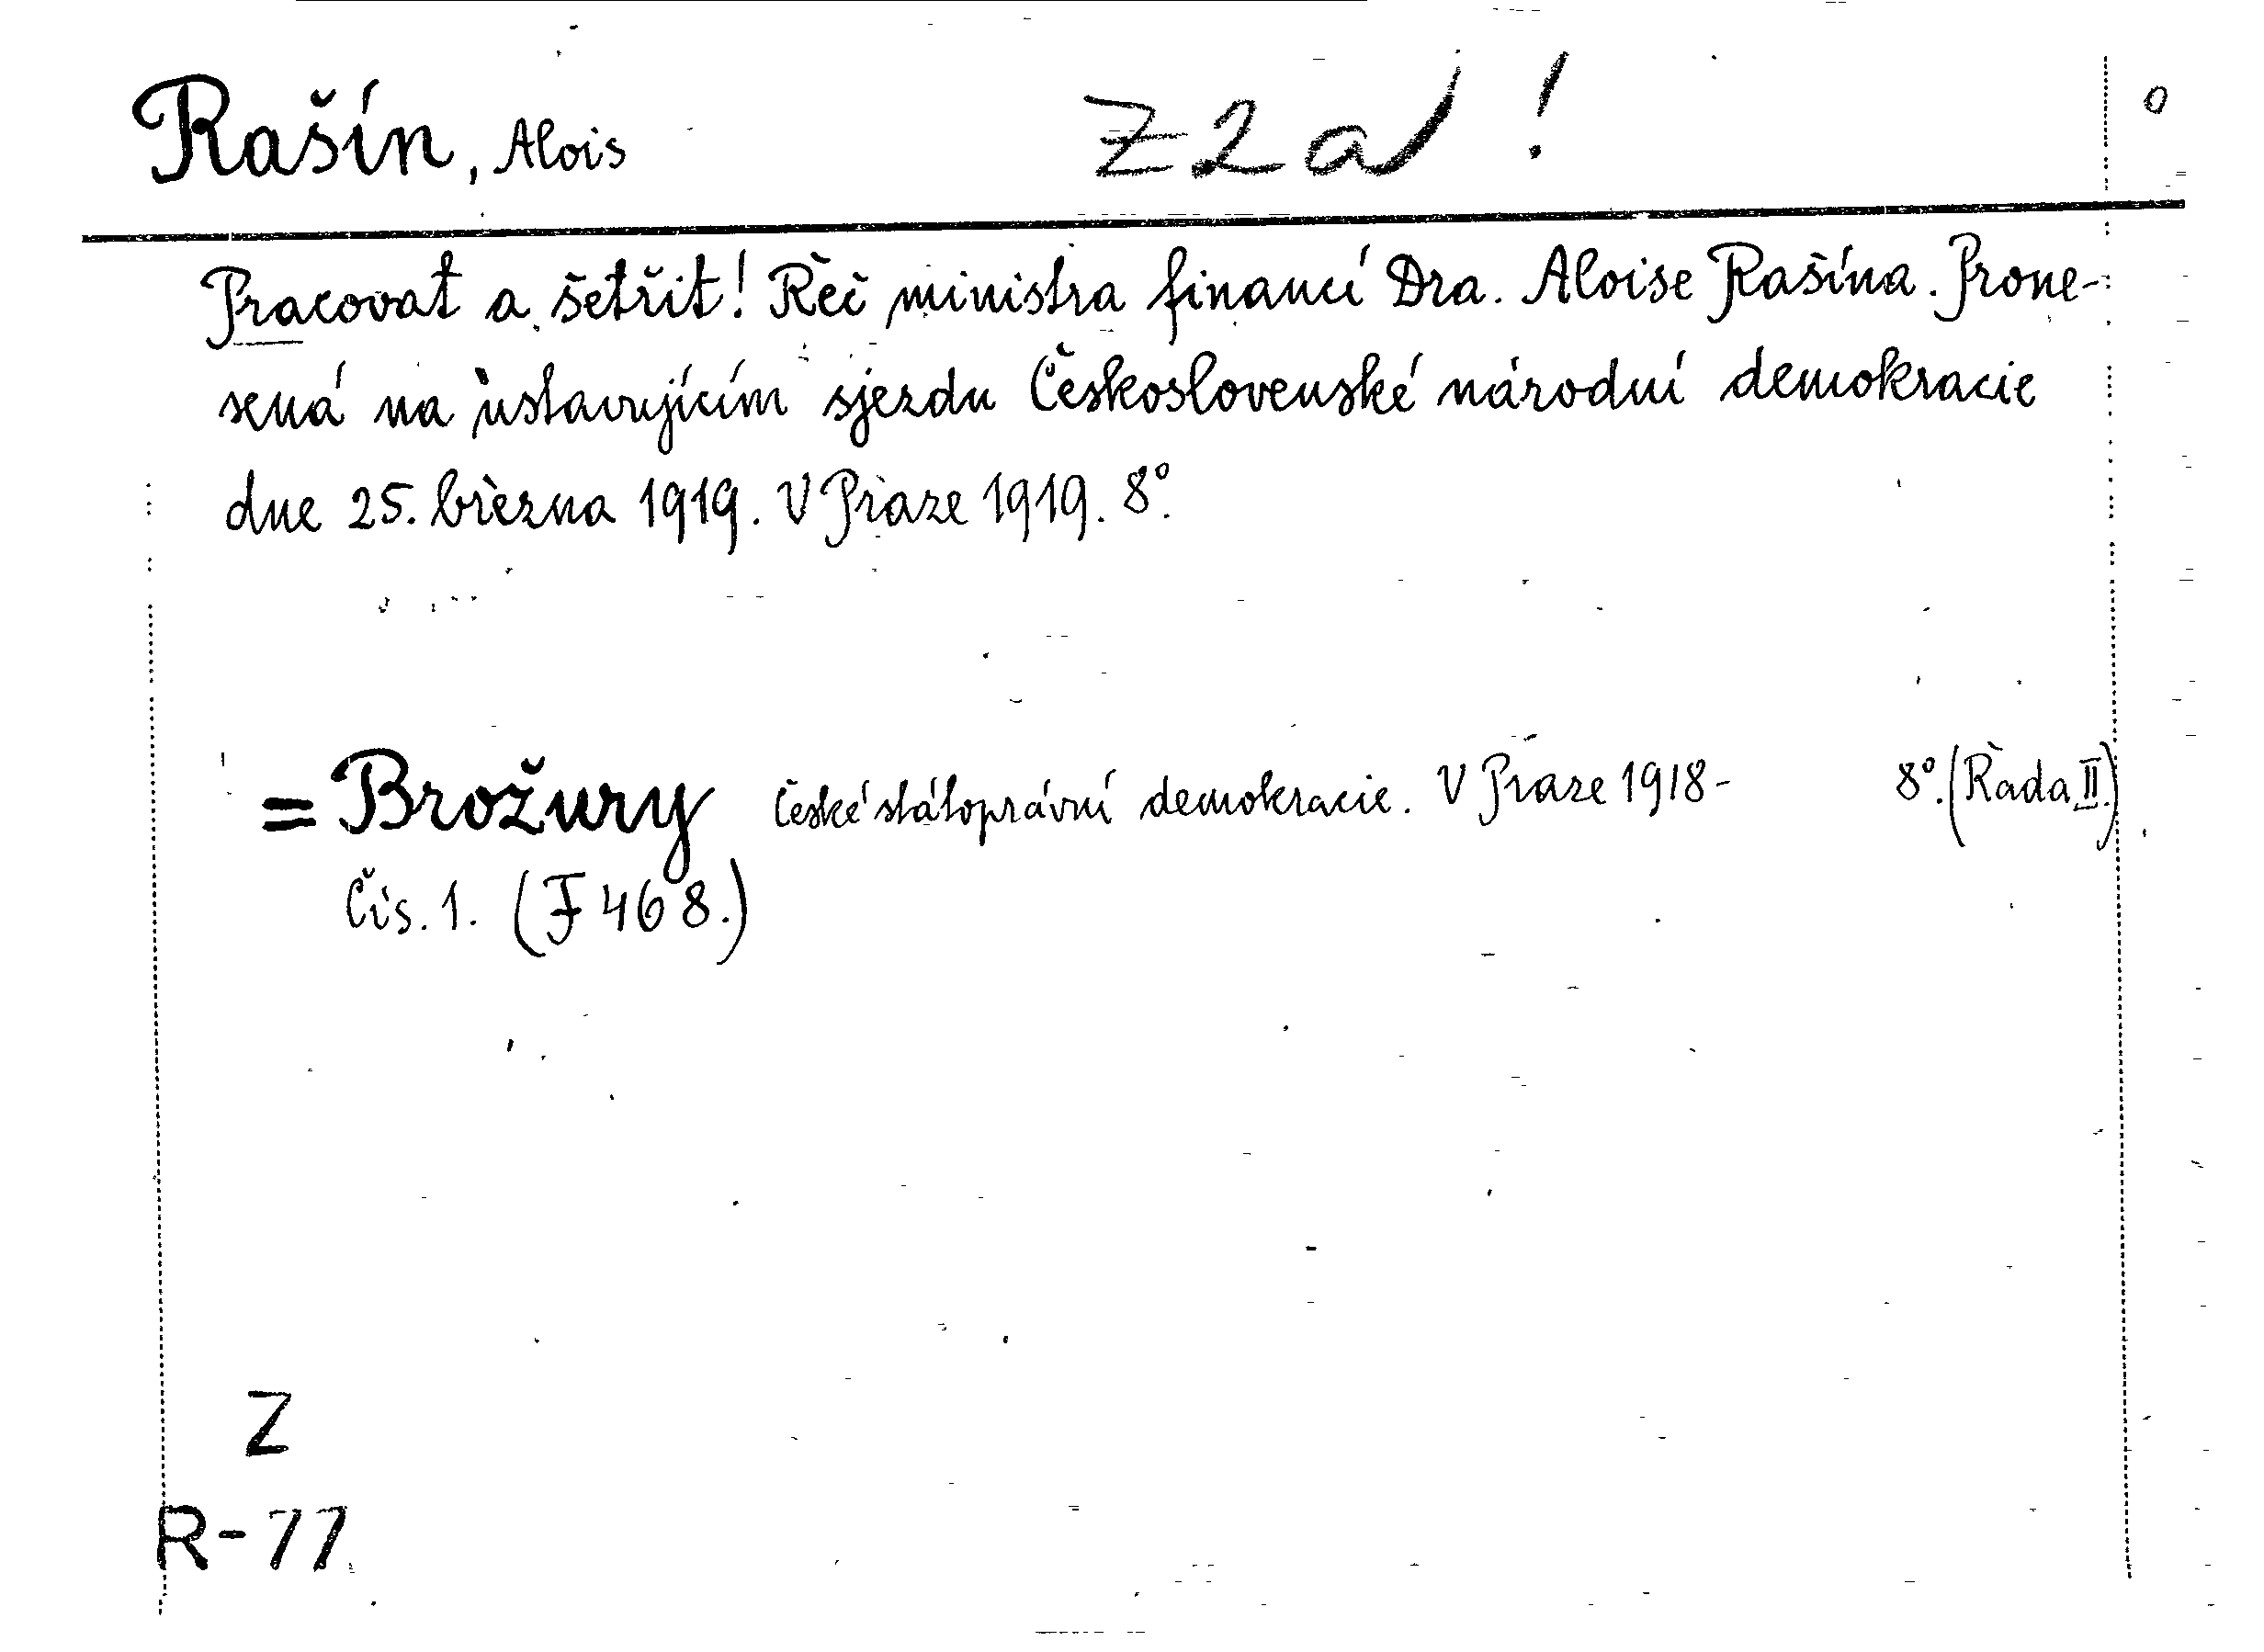 Rašín, Alois Z 2 a !
Pracovat a šetřit! Řeč ministra financí Dra. Aloise Rašína. Prone-
sená na ustavujícím sjezdu Československé národní demokracie
dne 25. března 1919. V Praze 1919. 8°.
= Brožury České státoprávní demokracie. V Praze 1918- 8°. (Řada II.)
Čís. 1. (F 468.)
Z
R-77